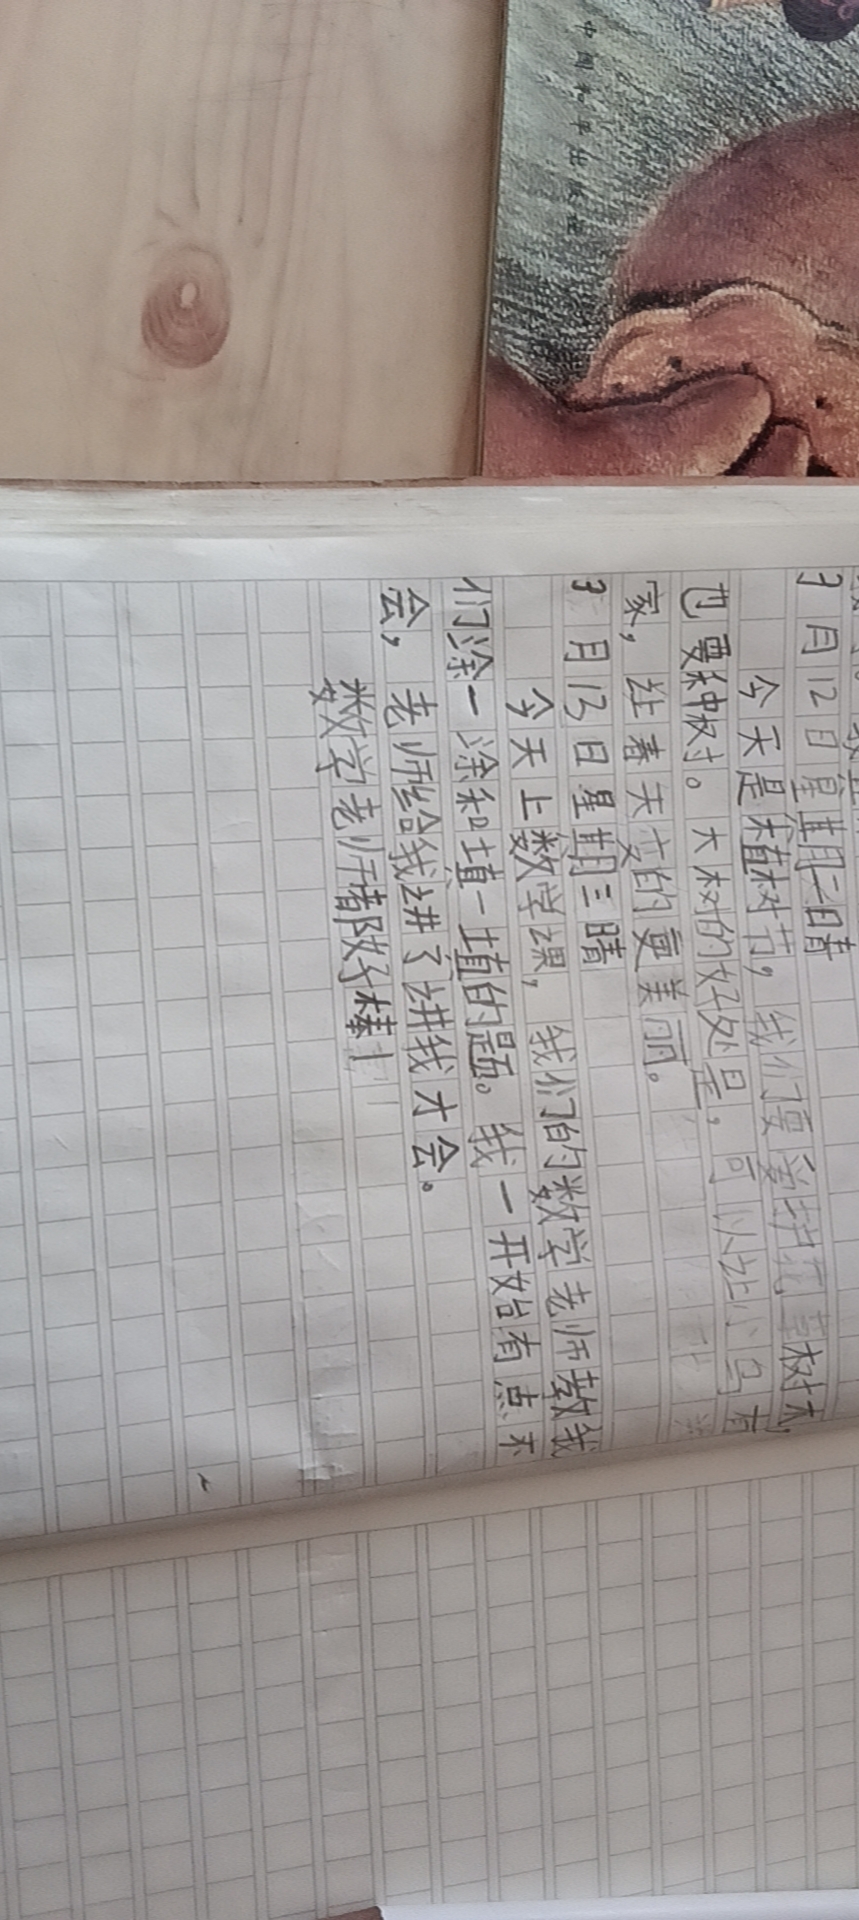 中国和平出版社
3月12日星期二晴
今天是植树节，我们要爱护花草树木，
也要种树。大树的好处是，可以让小鸟有
家，让春天变的更美丽。
3月13日星期三晴
今天上数学课，我们的数学老师教我
们涂一涂和填一填的题。我一开始有点不
会，老师给我讲了讲我才会。
数学老师都好棒！